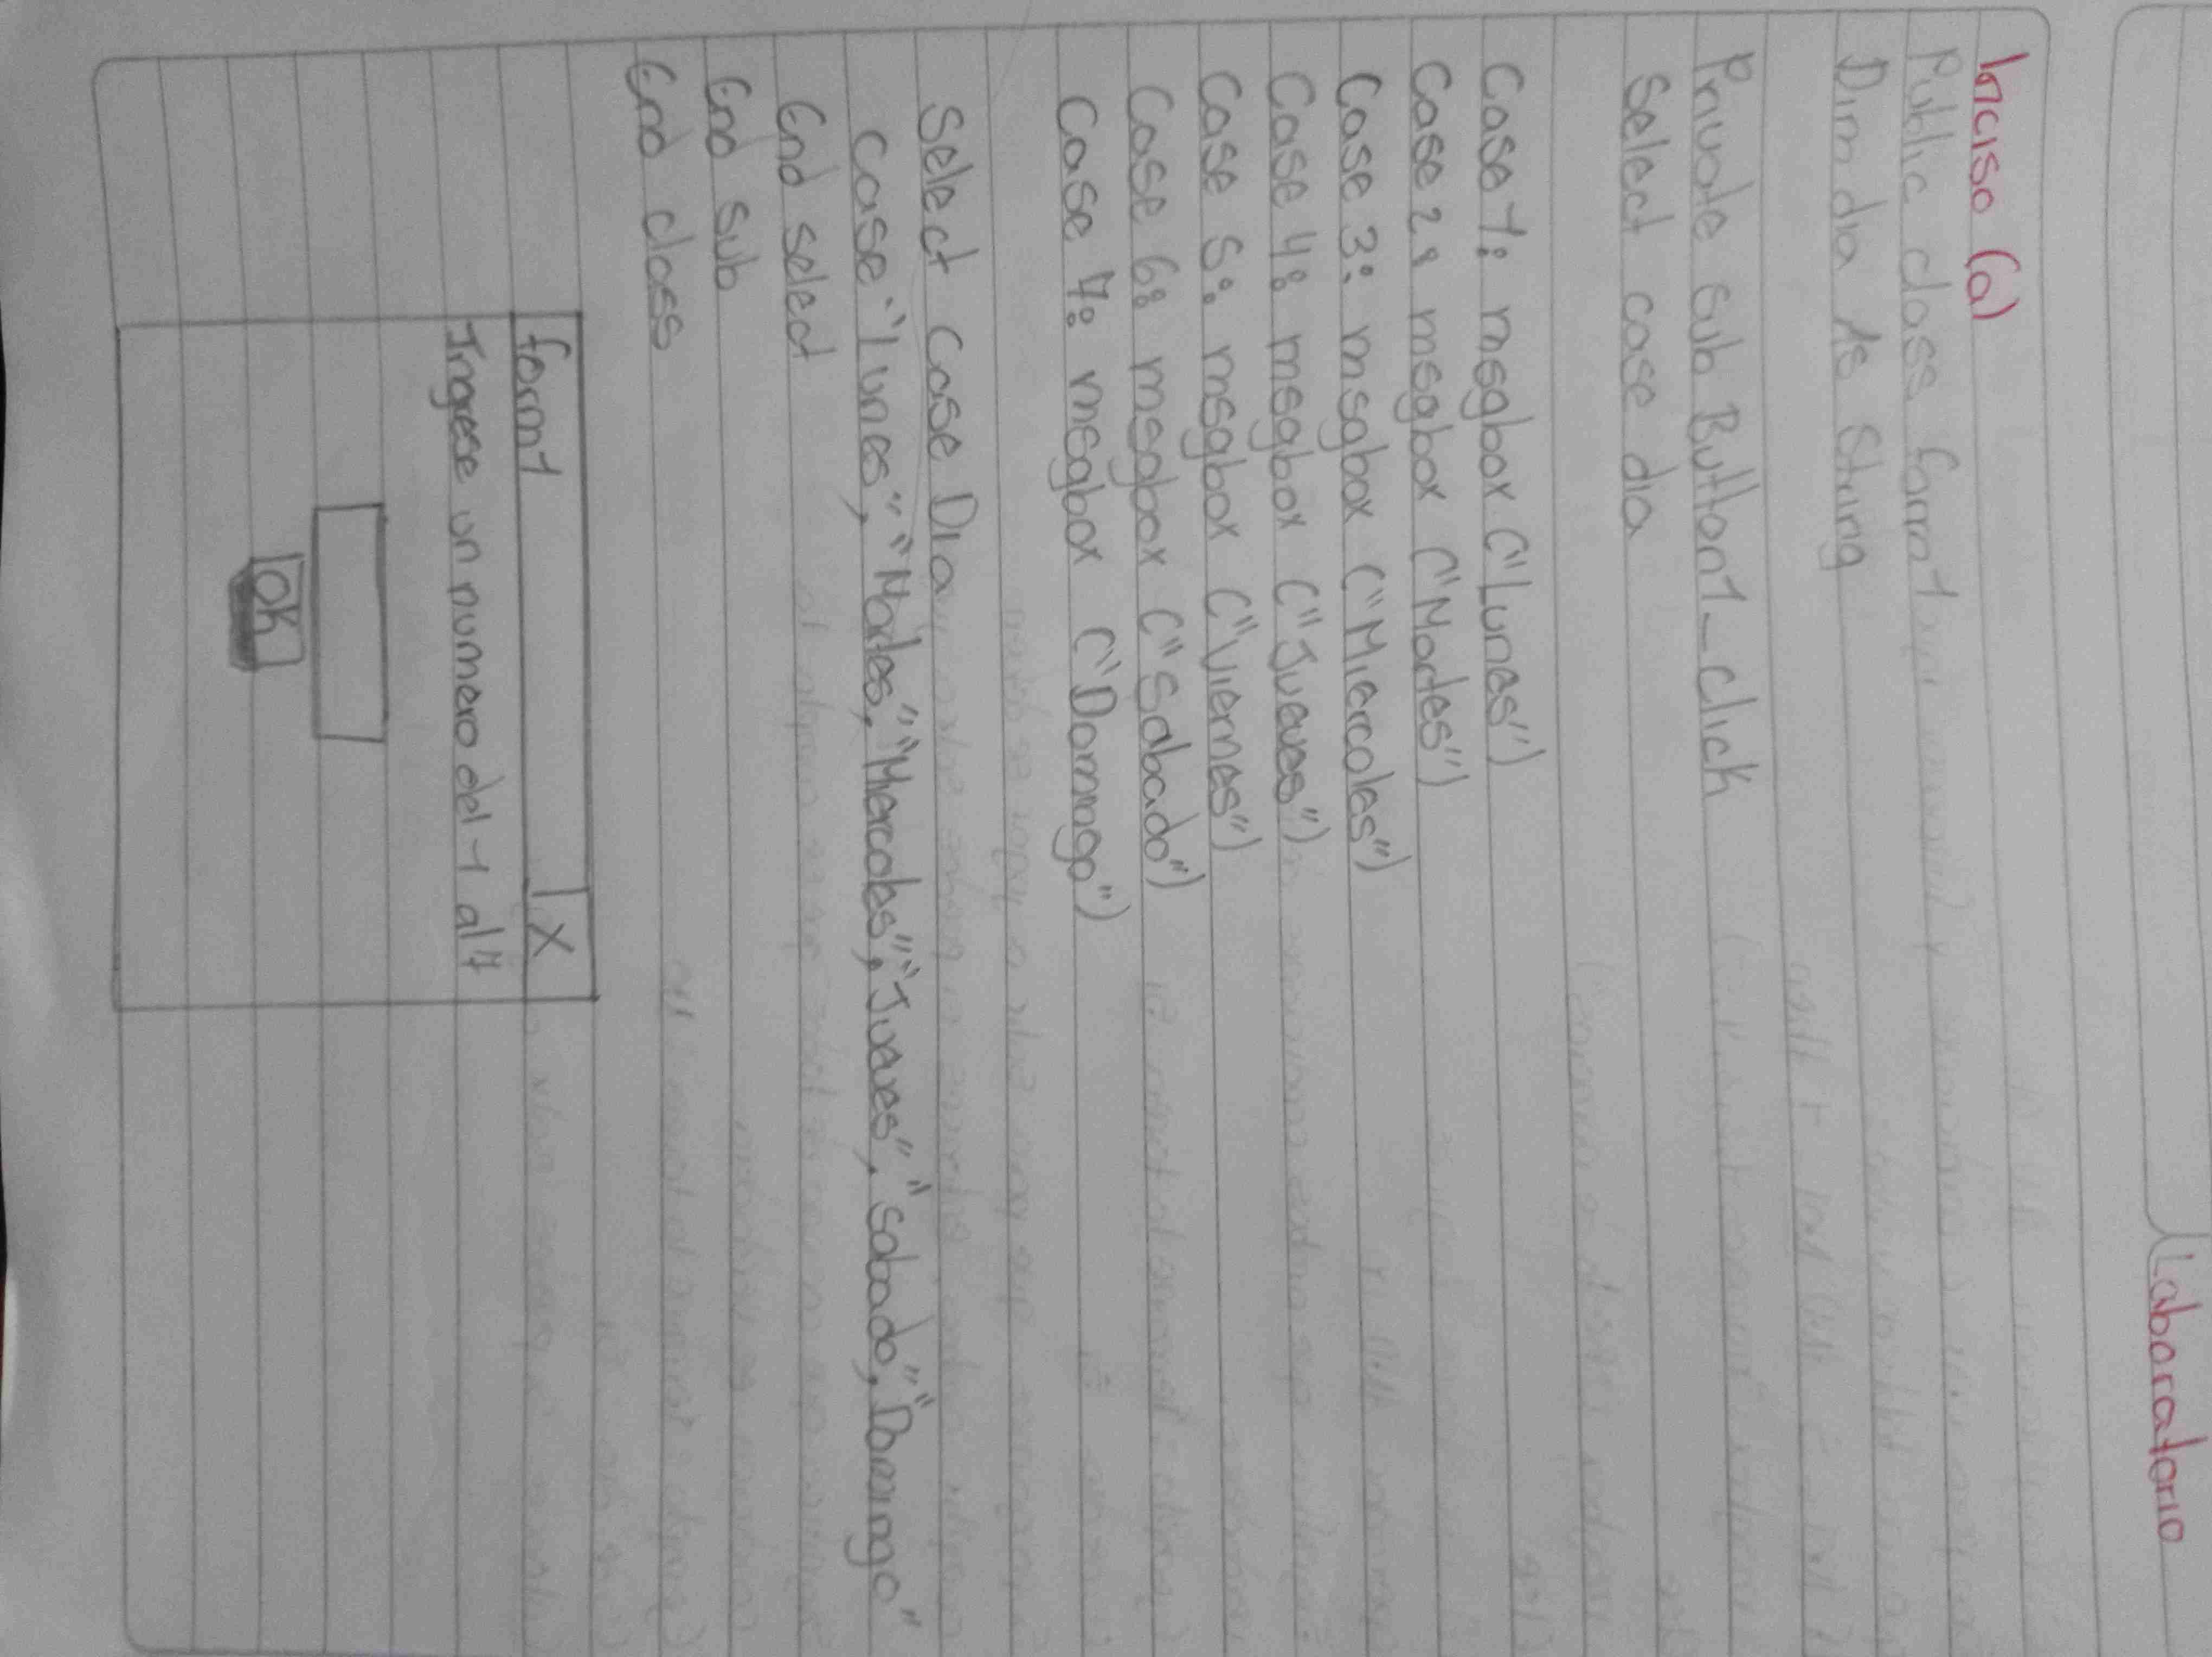 Laboratorio
Inciso (a)
Public class form1
Dim dia As String
Private Sub Button1_click
Select case dia
Case 1: msgbox ("Lunes")
Case 2: msgbox ("Martes")
Case 3: msgbox ("Miercoles")
Case 4: msgbox ("Jueves")
Case 5: msgbox ("Viernes")
Case 6: msgbox ("Sabado")
Case 7: msgbox ("Domingo")
Select Case Dia
Case "Lunes", "Martes," "Miercoles", "Jueves", "Sabado", "Domingo"
End select
End sub
End class
form1 X
Ingrese un numero del 1 al 7
OK